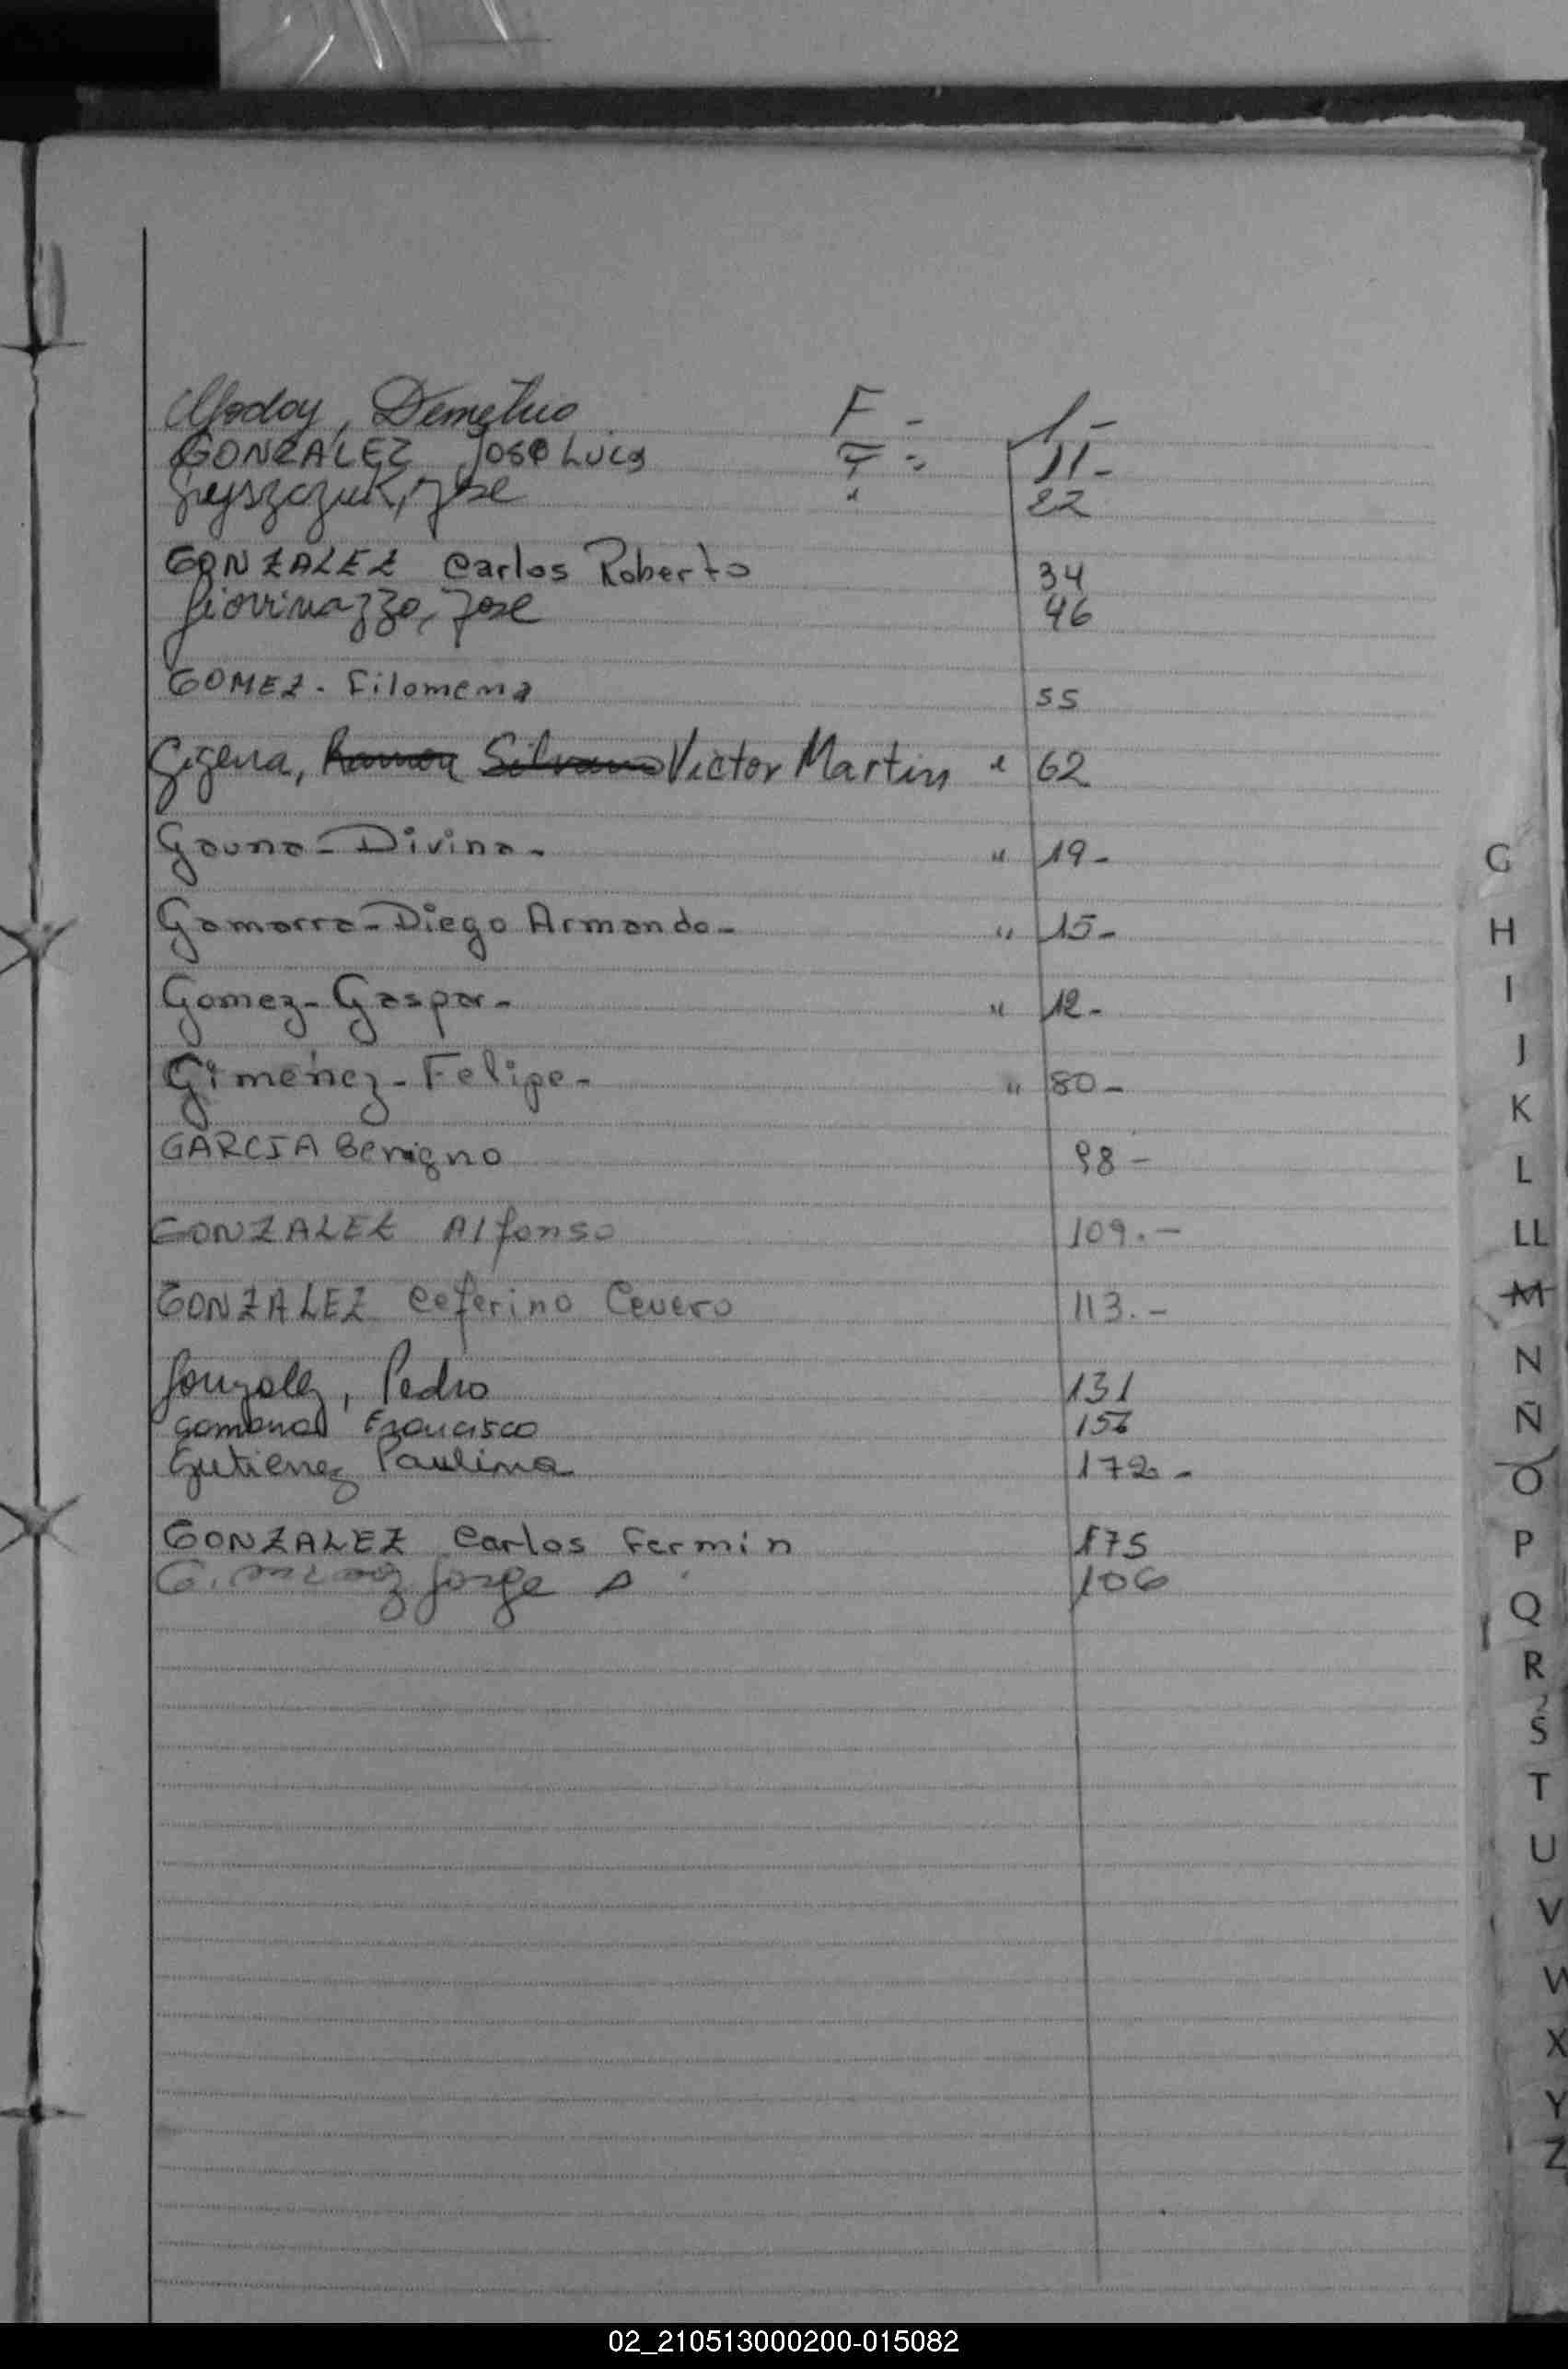 Godoy, Demetrio F - 1 -
GONZALEZ Jose Luis F - 11 -
Greyszczuk, Jose " 22
GONZALEZ Carlos Roberto 34
Giovinazzo, Jose 46
GOMEZ - Filomena 55
Gigena, Ramon Silvano Victor Martin " 62
Gauna - Divina - " 19 -
Gamarra - Diego Armando - " 15 -
Gomez - Gaspar - " 12 -
Gimenez - Felipe - " 80 -
GARCIA Benigno 98 -
GONZALEZ Alfonso 109. -
GONZALEZ Ceferino Cevero 113. -
Gonzalez, Pedro 131
Francisco 156
Gutierrez Paulina 172 -
GONZALEZ Carlos Fermin 175
Jorge A 106
G
H
I
J
K
L
LL
M
N
Ñ
O
P
Q
R
S
T
U
V
W
X
Y
Z
02_210513000200-015082